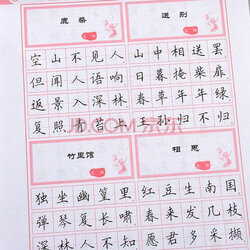 鹿柴
送别
空山不见人
山中相送罢
但闻人语响
日暮掩柴扉
返景入深林
春草年年绿
复照青苔上
王孙归不归
竹里馆
相思
独坐幽篁里
红豆生南国
弹琴复长啸
春来发几枝
深林人不
愿君多采